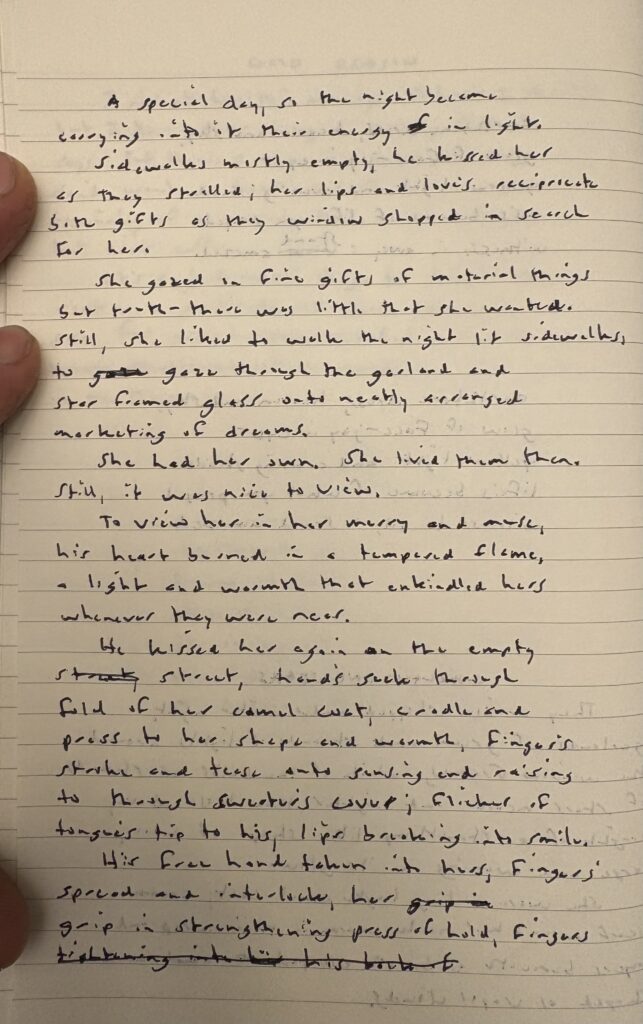 A special day, so the night became
carrying into it their energy in light.
Sidewalks mostly empty, he kissed her
as they strolled; her lips and love's reciprocate
both gifts as they window shopped in search
for her.
She gazed in fine gifts of material things
but truth - there was little that she wanted.
Still, she liked to walk the night lit sidewalks,
to gaze through the garland and
star framed glass onto neatly arranged
marketing of dreams.
She had her own. She lived them then.
Still, it was nice to view.
To view her in her merry and muse,
his heart burned in a tempered flame,
a light and warmth that enkindled hers
whenever they were near.
He kissed her again on the empty
street, hand's seek through
fold of her camel coat, cradle and
press to her shape and warmth, finger's
stroke and tease onto sensing and raising
to through sweater's cover; flicker of
tongue's tip to his, lips breaking into smile.
His free hand taken into hers, fingers'
spread and interlock, her grip in
grip in strengthening press of hold, fingers
tightening into his back of